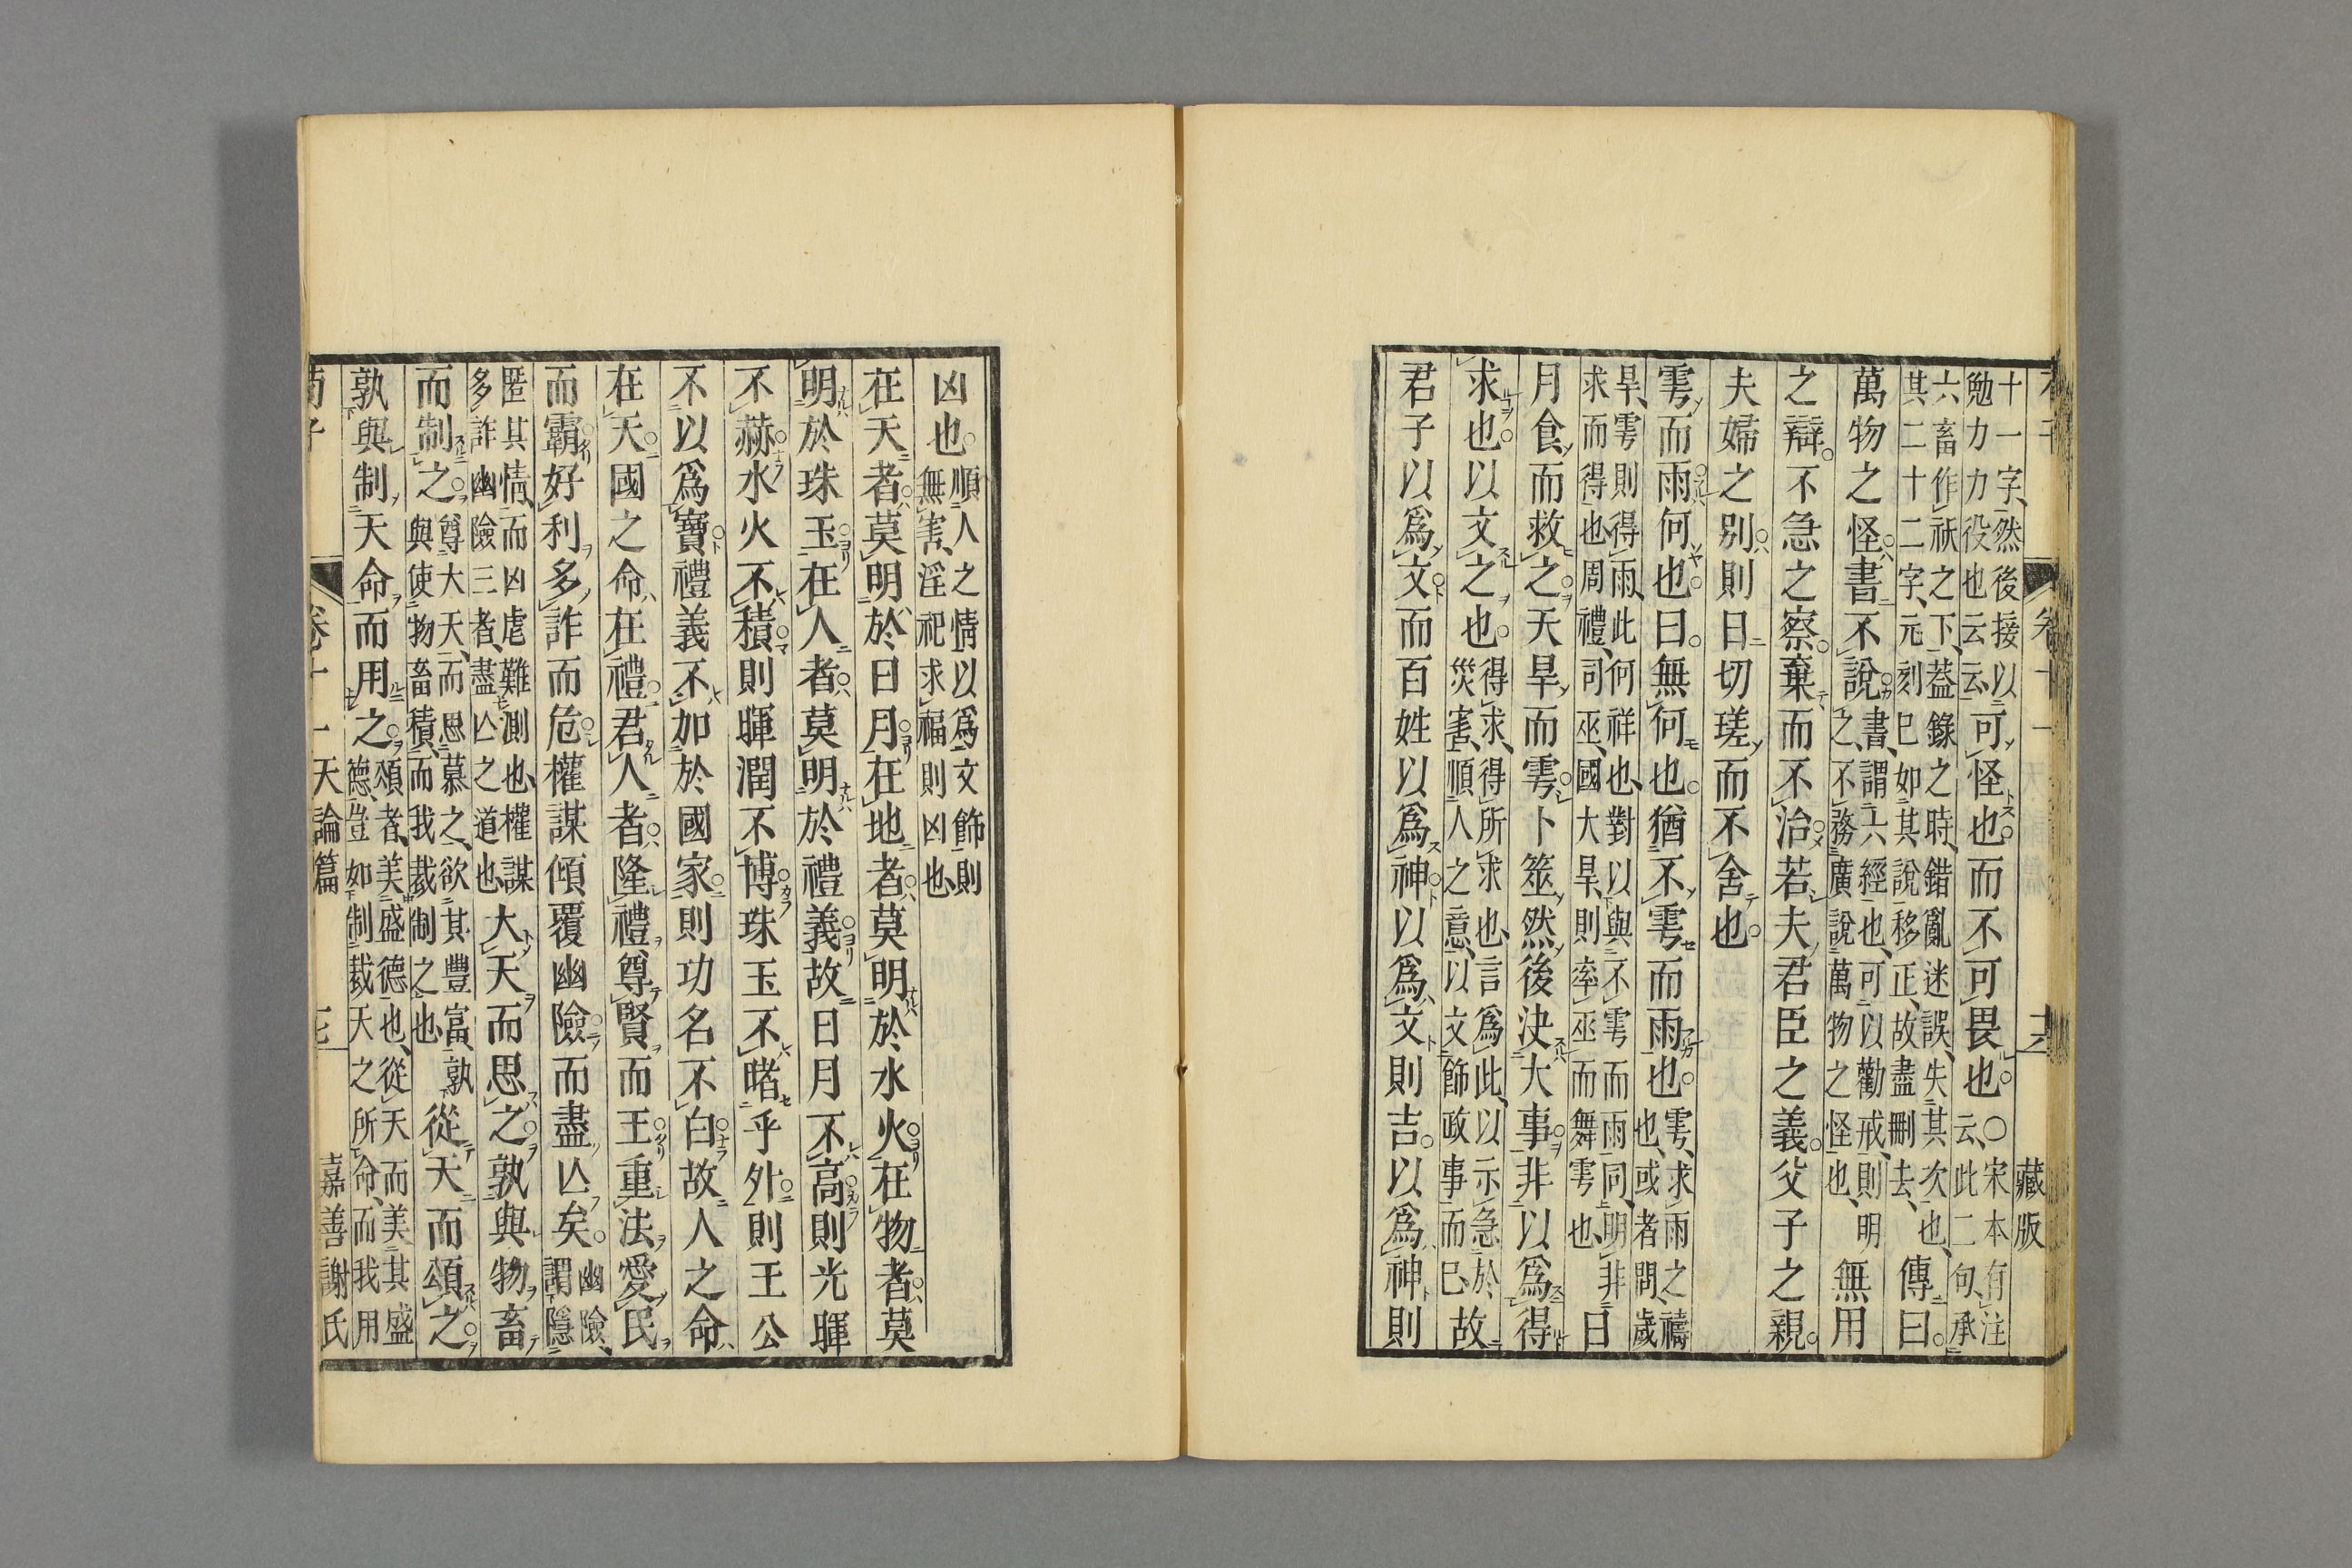 荀子 卷十一 十六 藏版
十一字、然後接以
勉力力役也云云、
可怪也。而不可畏也。
○宋本有注
云、此二句、承
六畜作祅之下、蓋錄之時、錯亂迷誤、失其次也、
其二十二字、元刻已如其說移正、故盡刪去、
傳曰。
萬物之怪。書不說。
書、謂六經也、可以勸戒、則明
之、不務廣說萬物之怪也、
無用
之辯。不急之察。棄而不治。若夫君臣之義。父子之親。
夫婦之别。則日切瑳而不舍也。
雩而雨。何也。曰。無何也。猶不雩而雨也。
雩、求雨之禱
也、或者問、歲
旱、雩則得雨、此何祥也、對以與不雩而雨同、明非
求而得也、周禮、司巫、國大旱、則率巫而舞雩也、
日
月食而救之。天旱而雩。卜筮然後決大事。非以爲得
求也。以文之也。
得求、得所求也、言爲此、以示急於
災害、順人之意、以文飾政事而已、
故
君子以爲文。而百姓以爲神。以爲文則吉。以爲神則
凶也。
順人之情、以爲文飾、則
無害、淫祀求福則凶也、
在天者。莫明於日月。在地者。莫明於水火。在物者。莫
明於珠玉。在人者。莫明於禮義。故日月不高。則光暉
不赫。水火不積。則暉潤不博。珠玉不睹乎外。則王公
不以爲寶。禮義不加於國家。則功名不白。故人之命
在天。國之命在禮。君人者。隆禮尊賢而王。重法愛民
而霸。好利多詐而危。權謀傾覆幽險而盡亾矣。
幽險、
謂隱
匿其情、而凶虐難測也、權謀
多詐幽險三者、盡亾之道也、
大天而思之。孰與物畜
而制之。
尊大天、而思慕之、欲其豐富、孰
與使物畜積、而我裁制之也、
從天而頌之。
孰與制天命而用之。
頌者、美盛德也、從天而美其盛
德、豈如制裁天之所命、而我用
荀子 卷十一 天論篇 十七 嘉善謝氏